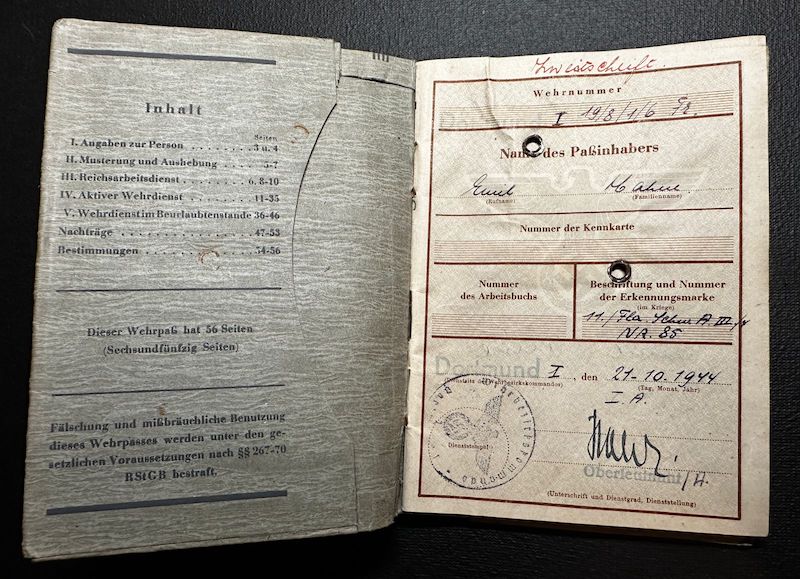 Inhalt
Seiten
I. Angaben zur Person . . . . . . . . 3 u. 4
II. Musterung und Aushebung . . . . . 5-7
III. Reichsarbeitsdienst . . . . . . . . 6, 8-10
IV. Aktiver Wehrdienst . . . . . . . . 11-35
V. Wehrdienst im Beurlaubtenstande 36-46
Nachträge . . . . . . . . . . . . . . 47-53
Bestimmungen . . . . . . . . . . . . 54-56
Dieser Wehrpaß hat 56 Seiten
(Sechsundfünfzig Seiten)
Fälschung und mißbräuchliche Benutzung
dieses Wehrpasses werden unter den ge-
setzlichen Voraussetzungen nach §§ 267-70
RStGB bestraft.
Zweitschrift.
Wehrnummer
I 19/8/1/6
Name des Paßinhabers
Emil
(Rufname) (Familienname)
Nummer der Kennkarte
Nummer
des Arbeitsbuchs
Beschriftung und Nummer
der Erkennungsmarke
(im Kriege)
11./Fla.
NR. 85
Dortmund I, den 21-10.1944
(Dienstsitz des Wehrbezirkskommandos) (Tag, Monat, Jahr)
I.A.
(Dienststempel)
Oberleutnant
(Unterschrift und Dienstgrad, Dienststellung)